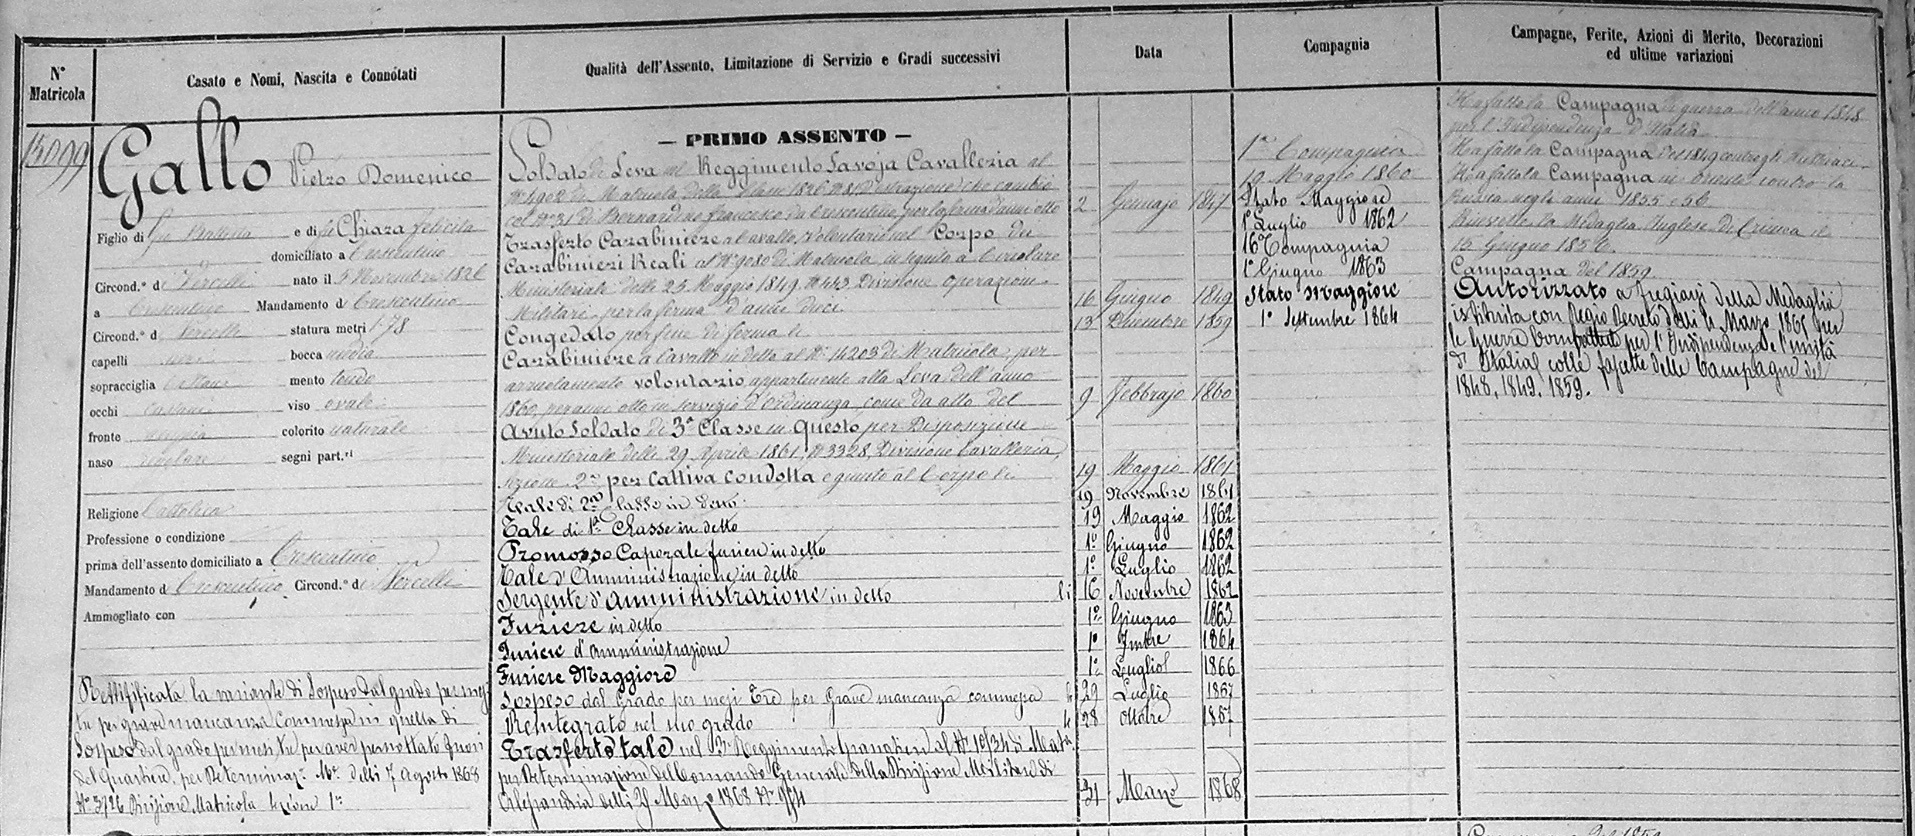 N°
Matricola
Casato e Nomi, Nascita e Connotati
Qualità dell'Assento, Limitazione di Servizio e Gradi successivi
Data
Compagnia
Campagne, Ferite, Azioni di Merito, Decorazioni
ed ultime variazioni
15099
Gallo Pietro Domenico
Figlio di fu Battista e di fu Chiara felicita
domiciliato a Crescentino
Circond.° di Vercelli nato il 5 Novembre 1826
a Crescentino Mandamento di Crescentino
Circond.° di Vercelli statura metri 1.78
capelli neri bocca media
sopracciglia castane mento tondo
occhi castani viso ovale
fronte ampia colorito naturale
naso regolare segni part.ri
Religione Cattolica
Professione o condizione
prima dell'assento domiciliato a Crescentino
Mandamento di Crescentino Circond.° di Vercelli
Ammogliato con
Rettificata la variante di Sospeso dal grado per mesi
tre per grave mancanza commessa in quella di
Sospeso dal grado per mesi tre per aver pernottato fuori
del Quartiere, per Determinaz.e M.le delli 7 Agosto 1868
N° 3726 Divisione Matricola Sezione 1a
— PRIMO ASSENTO —
Soldato di Leva nel Reggimento Savoja Cavalleria al
N° 4902 di Matricola della Classe 1826 N° 81 d'estrazione che cambiò
col N° 31 di Bernardino Francesco da Crescentino, per la ferma d'anni otto
2 Gennajo 1847
Trasferto Carabiniere a Cavallo, Volontario nel Corpo dei
Carabinieri Reali al N° 9080 di Matricola in seguito a Circolare
Ministeriale delle 25 Maggio 1849 N° 443 Divisione Operazioni
Militari per la ferma d'anni dieci
16 Giugno 1849
Congedato per fine di ferma li
13 Dicembre 1859
Carabiniere a Cavallo in detto al N° 14203 di Matricola, per
arruolamento volontario, appartenente alla Leva dell'anno
1860, per anni otto in servizio d'Ordinanza, come da atto del
9 Febbrajo 1860
Avuto Soldato di 3a Classe in Questo per Disposizione
Ministeriale delle 29 Aprile 1861, N° 3328, Divisione Cavalleria,
sezione 2a, per Cattiva Condotta e giunto al Corpo li
19 Maggio 1861
Tale di 2a Classe in detto
19 Novembre 1861
Tale di 1a Classe in detto
19 Maggio 1862
Promosso Caporale furiere in detto
1° Giugno 1862
Tale d'Amministrazione in detto
1° Luglio 1862
Sergente d'amministrazione in detto li
16 Novembre 1862
Furiere in detto
1° Giugno 1863
Furiere d'amministrazione
1° 7mbre 1864
Furiere Maggiore
1° Luglio 1866
Sospeso dal Grado per mesi Tre per Grave mancanza commessa li
29 Luglio 1867
Reintegrato nel suo grado li
28 Ottobre 1867
Trasferto tale nel 3° Reggimento Granatieri al N° 10734 di Mat.la
per Determinazione del Comando Generale della Divisione Militare di
Alessandria delli 25 Marzo 1868 N°
31 Marzo 1868
1a Compagnia
19 Maggio 1860
Stato Maggiore
1° Luglio 1862
16a Compagnia
1° Giugno 1863
Stato Maggiore
1° Settembre 1864
Ha fatto la Campagna di guerra dell'anno 1848
per l'Indipendenza d'Italia
Ha fatto la Campagna del 1849 contro gli Austriaci
Ha fatto la Campagna in oriente contro la
Russia negli anni 1855 e 56
Ricevette la Medaglia Inglese di Crimea il
15 Giugno 1856
Campagna del 1859.
Autorizzato a fregiarsi della Medaglia
istituita con Regio Decreto delli 4 Marzo 1865 per
le Guerre Combattute per l'Indipendenza e l'unità
d'Italia colle fascette delle Campagne del
1848, 1849, 1859.